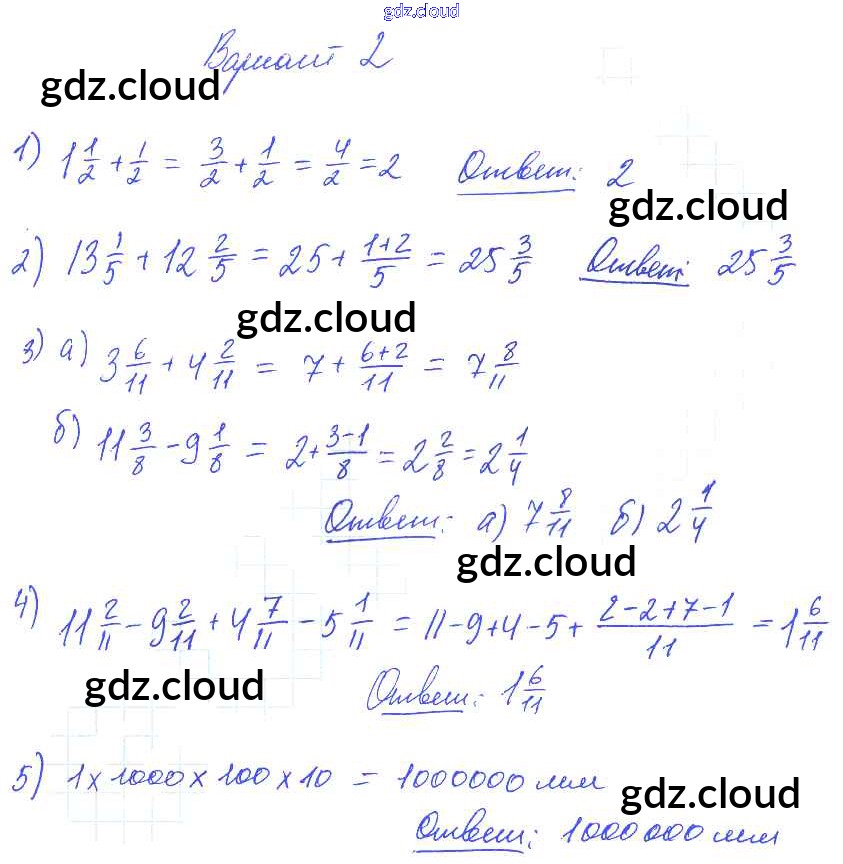 gdz.cloud
Вариант 2
gdz.cloud
1) 1 1/2 + 1/2 = 3/2 + 1/2 = 4/2 = 2 Ответ: 2
gdz.cloud
2) 13 1/5 + 12 2/5 = 25 + (1+2)/5 = 25 3/5 Ответ: 25 3/5
gdz.cloud
3) а) 3 6/11 + 4 2/11 = 7 + (6+2)/11 = 7 8/11
б) 11 3/8 - 9 1/8 = 2 + (3-1)/8 = 2 2/8 = 2 1/4
Ответ: а) 7 8/11 б) 2 1/4
gdz.cloud
4) 11 2/11 - 9 2/11 + 4 7/11 - 5 1/11 = 11-9+4-5+ (2-2+7-1)/11 = 1 6/11
gdz.cloud
Ответ: 1 6/11
5) 1 x 1000 x 100 x 10 = 1000000 мм
gdz.cloud
Ответ: 1000 000 мм